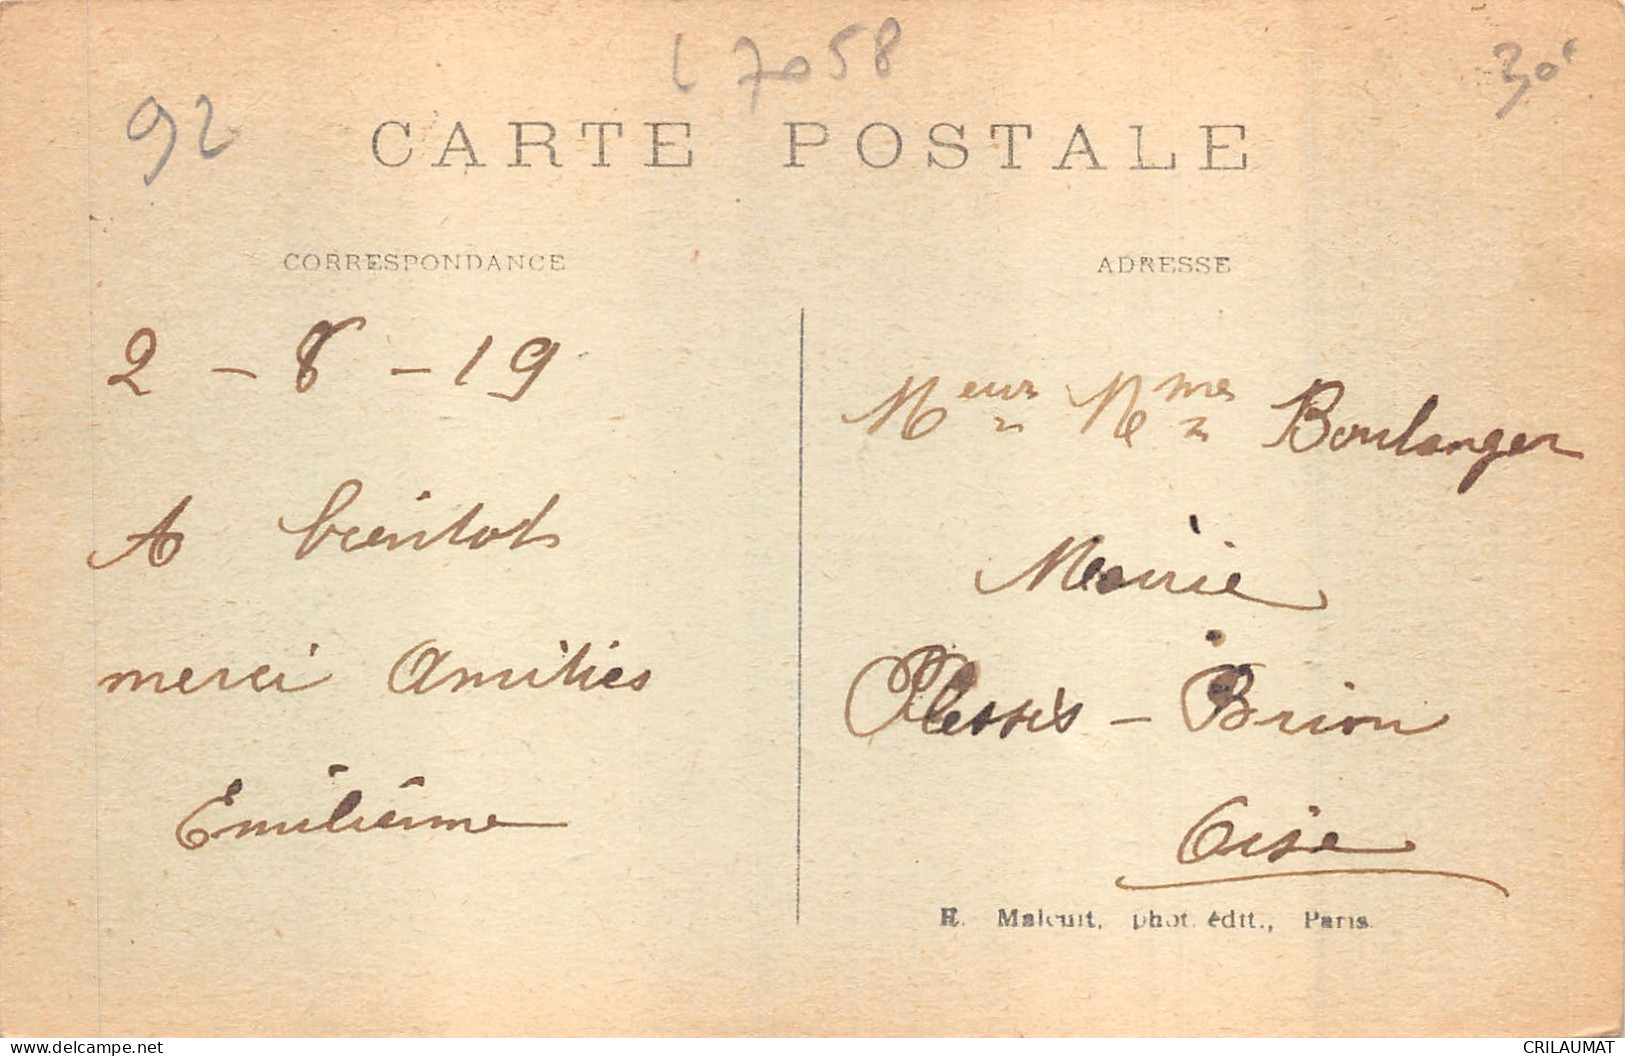 L 7058
30€
92
CARTE POSTALE
CORRESPONDANCE
2 - 8 - 19
A bientot
merci Amitiés
Emilienne
ADRESSE
Meur Mme Boulanger
Mairie
Plessis - Brion
Oise
E. Malcuit, phot. édit., Paris.
www.delcampe.net
CRILAUMAT